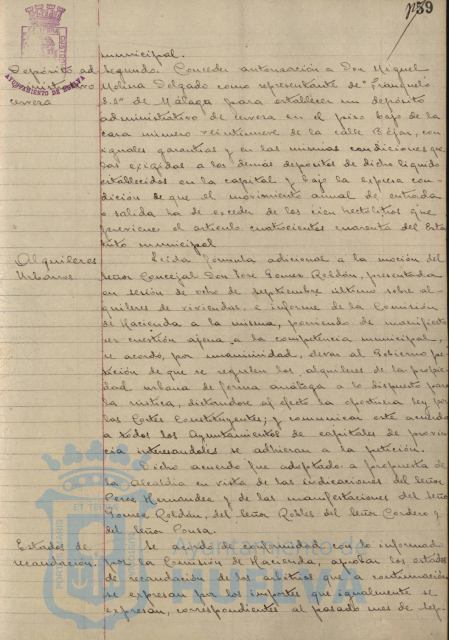 139
AYUNTAMIENTO DE HUELVA
municipal.
Depósito ad
ministrativo
cerveza
Segundo. Conceder autorización a Don Miguel
Molina Delgado como representante de "Franquelo
S.A." de Málaga para establecer un depósito
administrativo de cerveza en el piso bajo de la
casa número veintinueve de la calle Béjar, con
iguales garantías y en las mismas condiciones que
las exigidas a los demás depósitos de dicho líquido
establecidos en la capital y bajo la expresa con
dición de que el movimiento anual de entrada
o salida ha de exceder de los cien hectolitros que
previene el artículo cuatrocientos cuarenta del Esta
tuto municipal
Alquileres
Urbanos
Leída fórmula adicional a la moción del
señor Concejal Don José Gomez Roldán, presentada
en sesión de ocho de septiembre último sobre al
quileres de viviendas, e informe de la Comisión
de Hacienda a la misma, poniendo de manifiesto
ser cuestión ajena a la competencia municipal,
se acordó, por unanimidad, elevar al Gobierno pe
tición de que se regulen los alquileres de la propie
dad urbana de forma análoga a lo dispuesto para
la rústica, dictándose al efecto la oportuna ley por
las Cortes Constituyentes; y comunicar este acuerdo
a todos los Ayuntamientos de capitales de provin
cia interesándoles se adhieran a la petición.
Dicho acuerdo fue adoptado a propuesta de
la Alcaldía en vista de las indicaciones del señor
Perez Hernandez y de las manifestaciones del señor
Gomez Roldán, del señor Robles del señor Cordero y
del señor Pousa.
Estados de
recaudación.
Se acordó de conformidad con lo informado
por la Comisión de Hacienda, aprobar los estados
de recaudación de los arbitrios que a continuación
se expresan por los importes que igualmente se
expresan, correspondientes al pasado mes de sep-
Ayuntamiento de
HUELVA